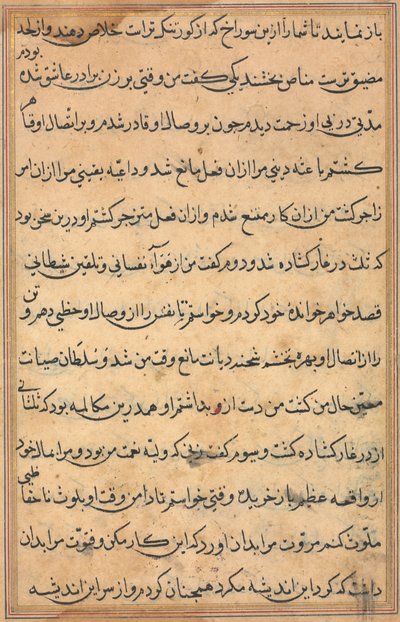 باز نمایند تا شما را ازین سوراخ که از کور تنک تر است خلاص دهند و از لحد
مضیق ترست مناص بخشند یکی کفت من وقتی بر زن برادر عاشق شده بودم
مدتی در پی او زحمت دیدم چون بر وصال او قادر شدم و بر اتصال او قاهر
کشتم باعثه دینی مرا ازان فعل مانع شد و داعیه یقینی مرا ازان امر
زاجر کشت من ازان کار ممتنع شدم و ازان فعل منزجر کشتم او درین سخن بود
که ثلث در غار کشاده شد و دوم کفت من از هواء نفسانی و تلقین شیطانی
قصد خواهر خوانده خود کردم و خواستم تا نفس را از وصال او حظی دهم و تن
را از اتصال او بهره بخشم شحنه دیانت مانع وقت من شد و سلطان صیانت
حال من کشت من دست ازو بداشتم او همدرین مکالمه بود که ثلثانی
از در غار کشاده کشت و سوم کفت زنی که ولیه نعمت من بود و مرا بمال خود
از واقعه عظیم باز خریده وقتی خواستم تا دامن وقت او بلوث
ملوث کنم مروت مرا بدان آورد که این کار مکن و فتوت مرا بدان
داشت که کرد این اندیشه مکرد همچنان کردم و از سر این اندیشه